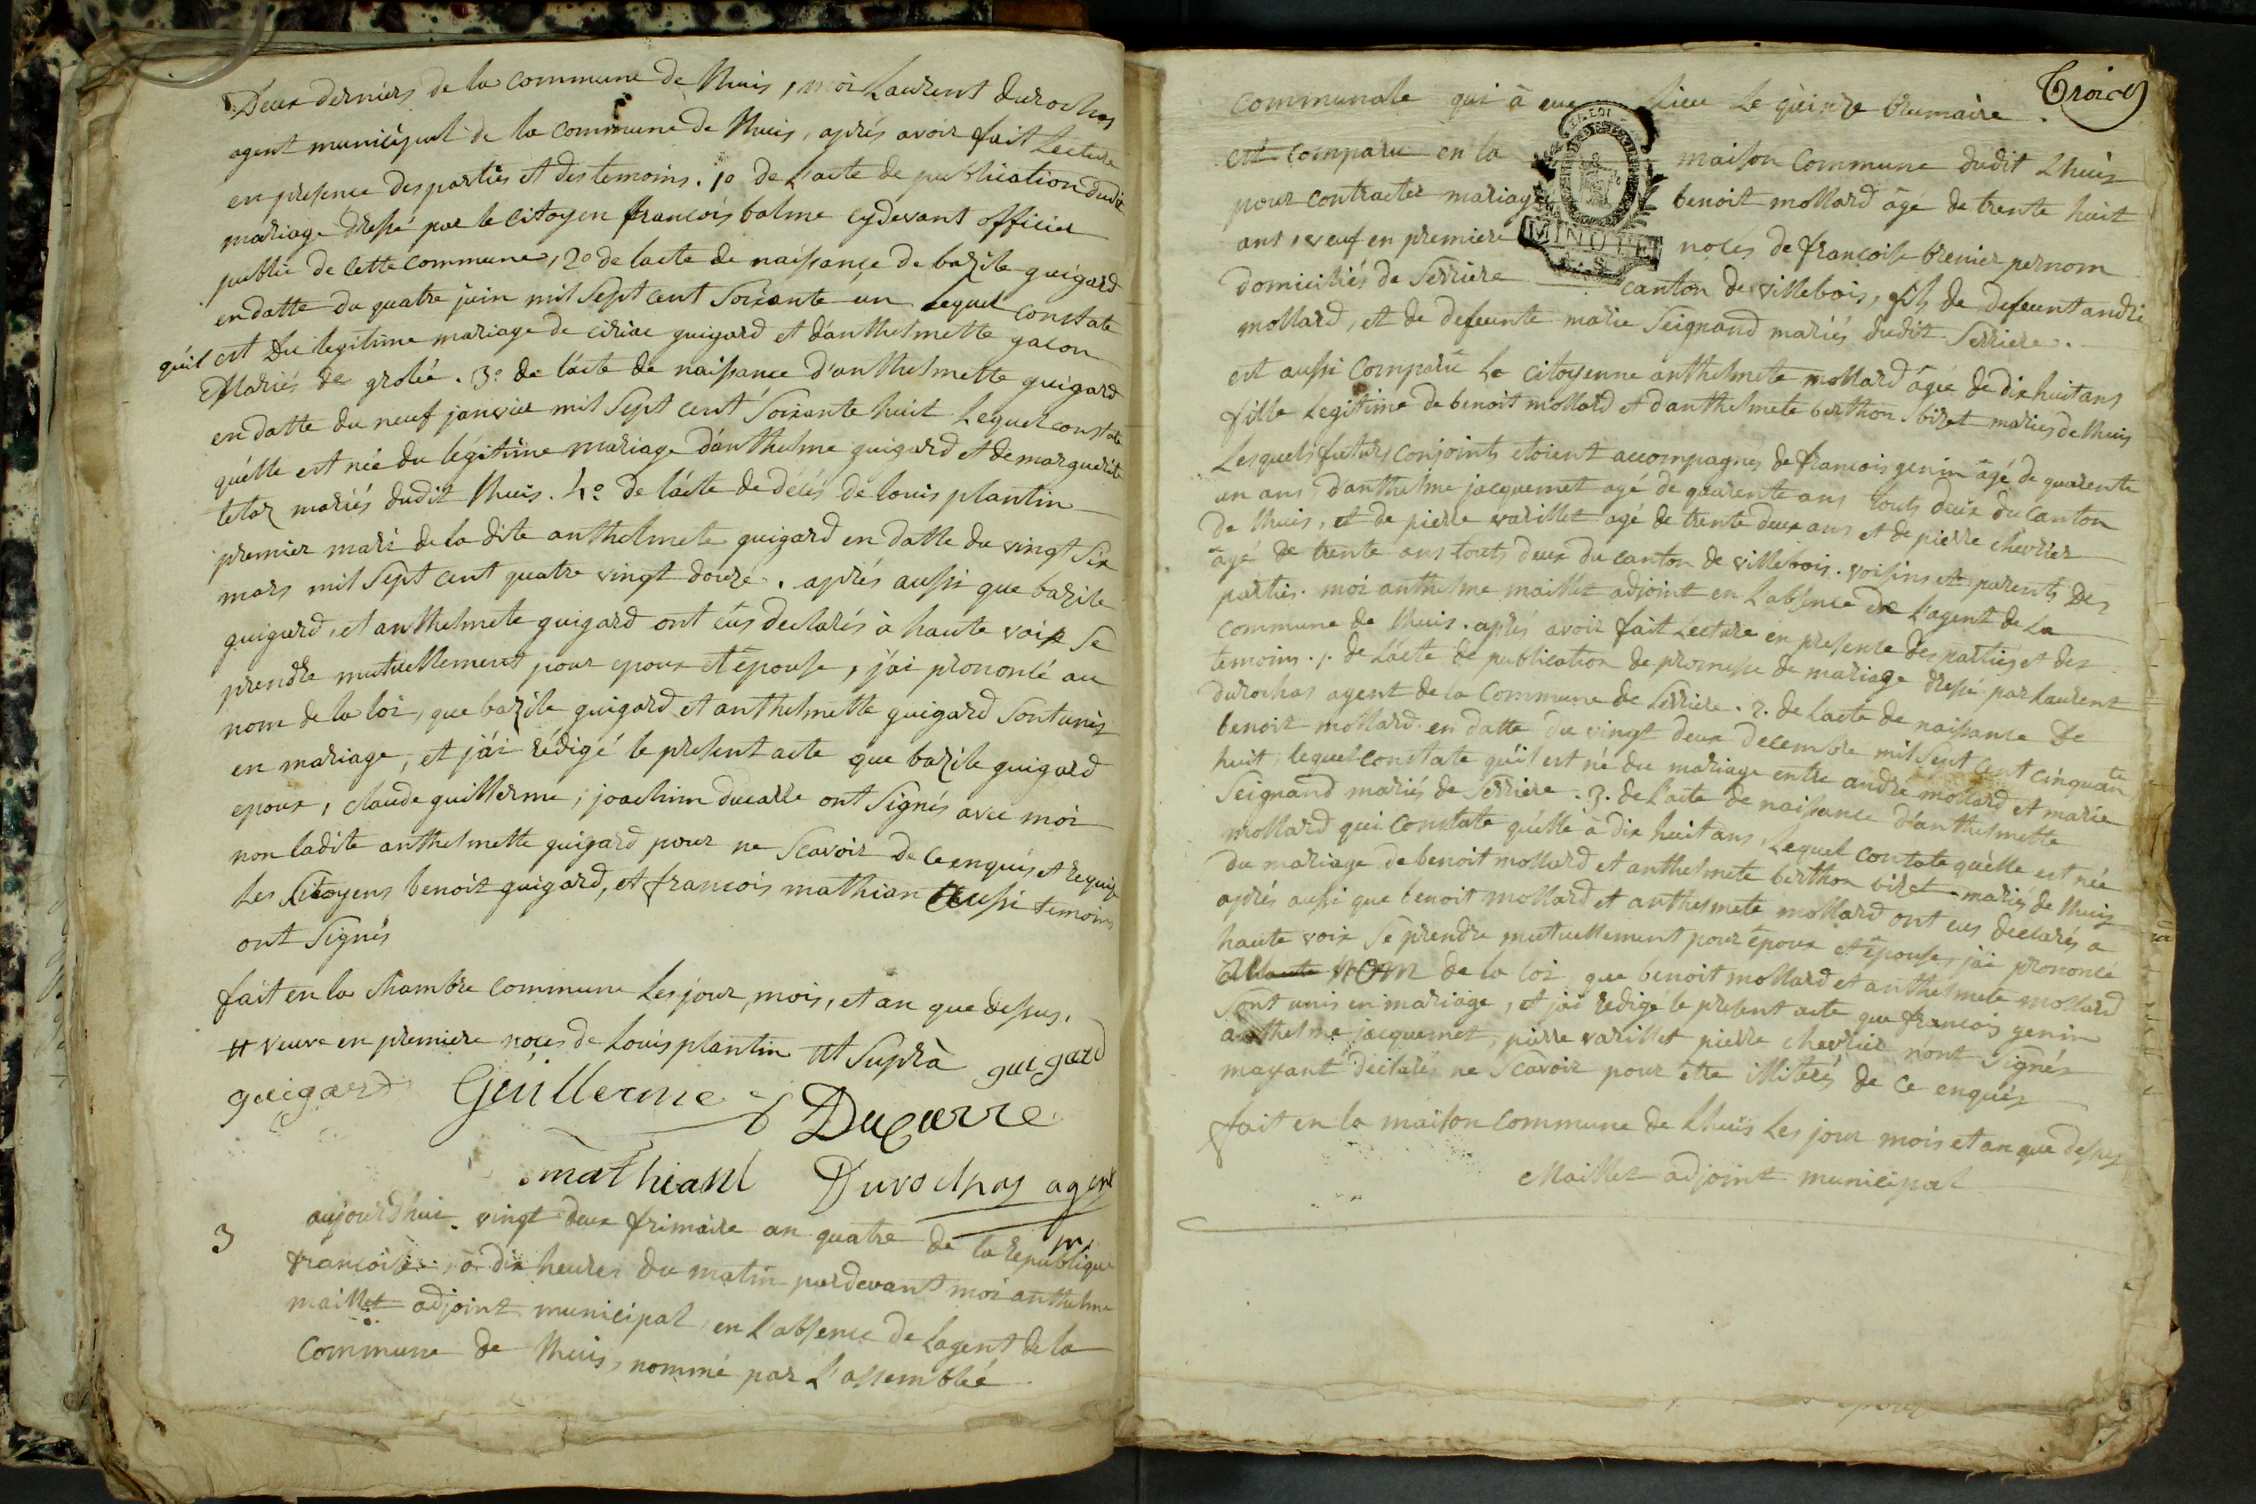 Deux derniers de la commune de lhuis, moi Laurent durochas
agent municipal de la commune de lhuis, aprés avoir fait Lecture
en presence des parties et des temoins. 1º de l'acte de publication dudit
mariage dressé par le citoyen francois balme cydevant officier
public de cette commune, 2º de lacte de naissance de bazile guigard
en datte du quatre juin mil sept cent soixante un Lequel constate
qu'il est du legitime mariage de ciriac guigard et d'anthelmette galon
Mariés de groleé. 3º de l'acte de naissance d'anthelmette guigard
en datte du neuf janvier mil sept cent soixante huit Lequel constate
qu'elle est née du légitime mariage d'anthelme guigard et de marguerite
tetaz mariés dudit lhuis. 4º de l'acte de décés de louis plantin
premier mari de la dite anthelmete guigard en datte du vingt six
mars mil sept cent quatre vingt douze. aprés aussi que bazile
guigard, et anthelmete guigard ont eus declarés à haute voix se
prendre mutuellement pour epoux et épouse, j'ai prononcé au
nom de la loi, que bazile guigard et anthelmette guigard sont unis
en mariage, et j'ai rédigé le present acte que bazile guigard
epoux, claude guillerme, joachim ducarre ont signés avec moi
non ladite anthelmette guigard pour ne scavoir de ce enquis et requise
Les citoyens benoit guigard, et francois mathian aussi temoins
ont signés
fait en la chambre commune les jour, mois, et an que dessus.
# veuve en premiere noces de Louis plantin ut suprà guigard
guigard Guillerme J Ducarre
mathiant Durochas agent
m.
3 aujourd'hui vingt deux frimaire an quatre de la republique
francoise, à dix heures du matin pardevant moi anthelme
maillet adjoint municipal en l'absence de lagent de la
Commune de lhuis, nommé par l'assemblée
Trois
communale qui à eue lieu le quinze brumaire
est comparu en la maison commune dudit Lhuis
pour contracter mariage benoit mollard âgé de trente huit
ans, veuf en premiere noces de francoise brenier pernom
domiciliés de serriere canton de villebois, fils de defeunt andré
mollard, et de defeunte marie seignand mariés dudit serriere.
LA LOI
MINUTE
est aussi comparue La citoyenne anthelmete mollard âgée de dix huit ans
fille Legitime de benoit mollard et d'anthelmete berthon bizet mariés de lhuis
Lesquels futurs conjoints etoient accompagnés de francois genin âgé de quarente
un ans, d'anthelme jacquemet agé de quarente ans touts deux du canton
de lhuis, et de pierre varillet agé de trente deux ans et de pierre chevrier
âgé de trente ans touts deux du canton de villebois. voisins et parents des
parties. moi anthelme maillet adjoint en l'absence de l'agent de la
commune de lhuis. aprés avoir fait Lecture en presence des parties et des
temoins. 1. de l'acte de publication de promesse de mariage dressé par laurent
durochas agent de la commune de serriere. 2. de lacte de naissance de
benoit mollard en datte du vingt deux decembre mil sept cent cinquante
huit, lequel constate qu'il est né du mariage entre andré mollard et marie
seignand mariés de serriere. 3. de l'acte de naissance d'anthelmette
mollard qui constate qu'elle à dix huit ans, Lequel contate qu'elle est née
du mariage de benoit mollard et anthelmete berthon bizet mariés de lhuis
aprés aussi que benoit mollard et anthelmete mollard ont eus declarés a
haute voix se prendre mutuellement pour époux et épouse, j'ai prononcé
au nom de la loi que benoit mollard et anthelmete mollard
sont unis en mariage, et j'ai redigé le present acte que francois genin
anthelme jacquemet, pierre varillet pierre chevrier n'ont signés
mayant declarés ne scavoir pour etre illiterés de ce enquis
fait en la maison commune de Lhuis Les jour mois et an que dessus
Maillet adjoint municipal